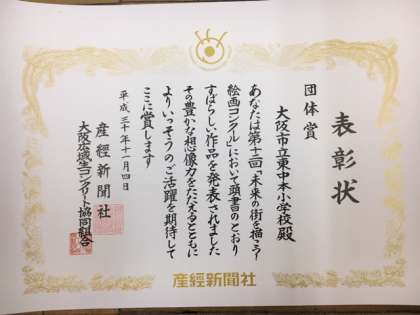 表彰状
団体賞
大阪市立東中本小学校殿
あなたは第十一回「未来の街を描こう」
絵画コンクールにおいて頭書のとおり
すばらしい作品を発表されました
その豊かな想像力をたたえるとともに
よりいっそうのご活躍を期待して
ここに賞します
平成三十年十一月四日
産經新聞社
大阪広域生コンクリート協同組合
産經新聞社